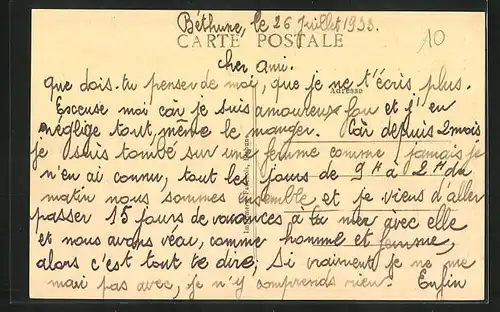 Béthune, le 26 Juillet 1933.
10
CARTE POSTALE
cher ami.
que dois-tu penser de moi, que je ne t'écris plus.
Adresse
Excuse moi car je suis amoureux fou et j'en
néglige tout, même le manger. Car depuis 2 mois
je suis tombé sur une femme comme jamais je
n'en ai connu, tout les jours de 9H à 2H du
matin nous sommes ensemble, et je viens d'aller
passer 15 jours de vacances à la mer avec elle
et nous avons vécu, comme homme et femme,
alors c'est tout te dire, Si vraiment je ne me
mari pas avec, je n'y comprends rien. Enfin